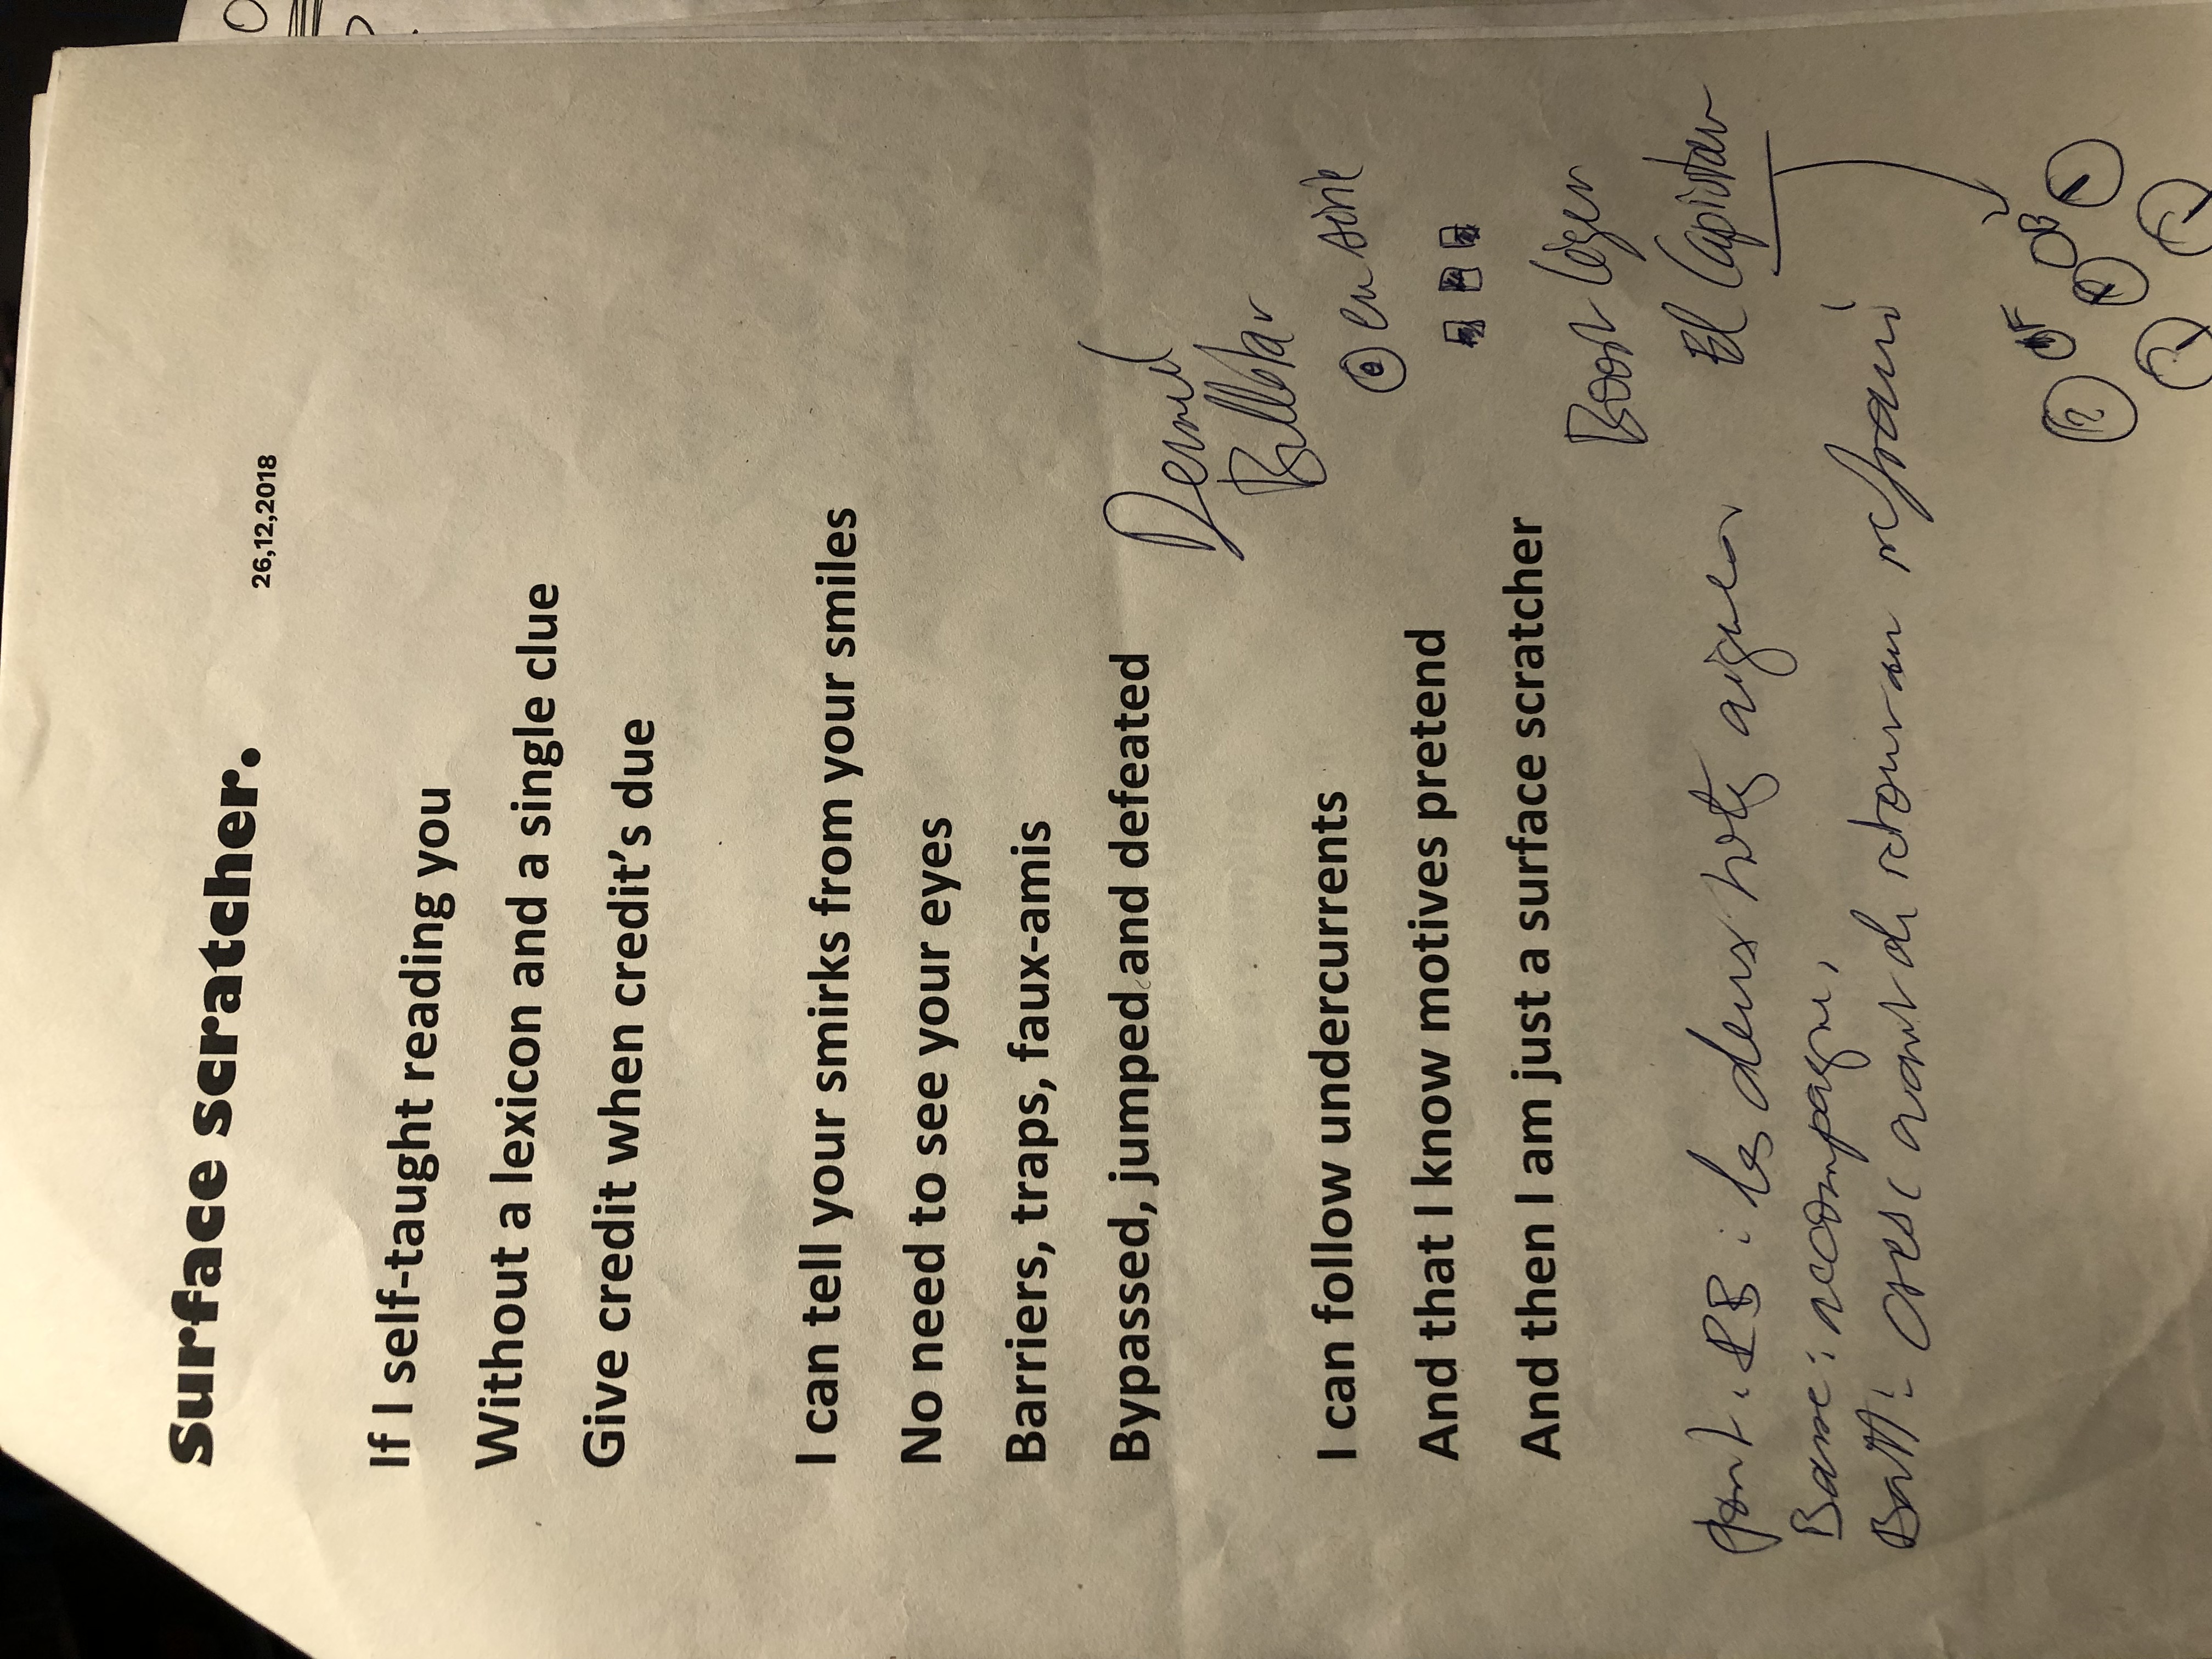 Surface scratcher.
26,12,2018
If I self-taught reading you
Without a lexicon and a single clue
Give credit when credit's due
I can tell your smirks from your smiles
No need to see your eyes
Barriers, traps, faux-amis
Bypassed, jumped and defeated
I can follow undercurrents
And that I know motives pretend
And then I am just a surface scratcher
en série
Boost léger
El Capistan
les deux notes aigues
Basse : accompagne,
Batt : avant de retour au refrain